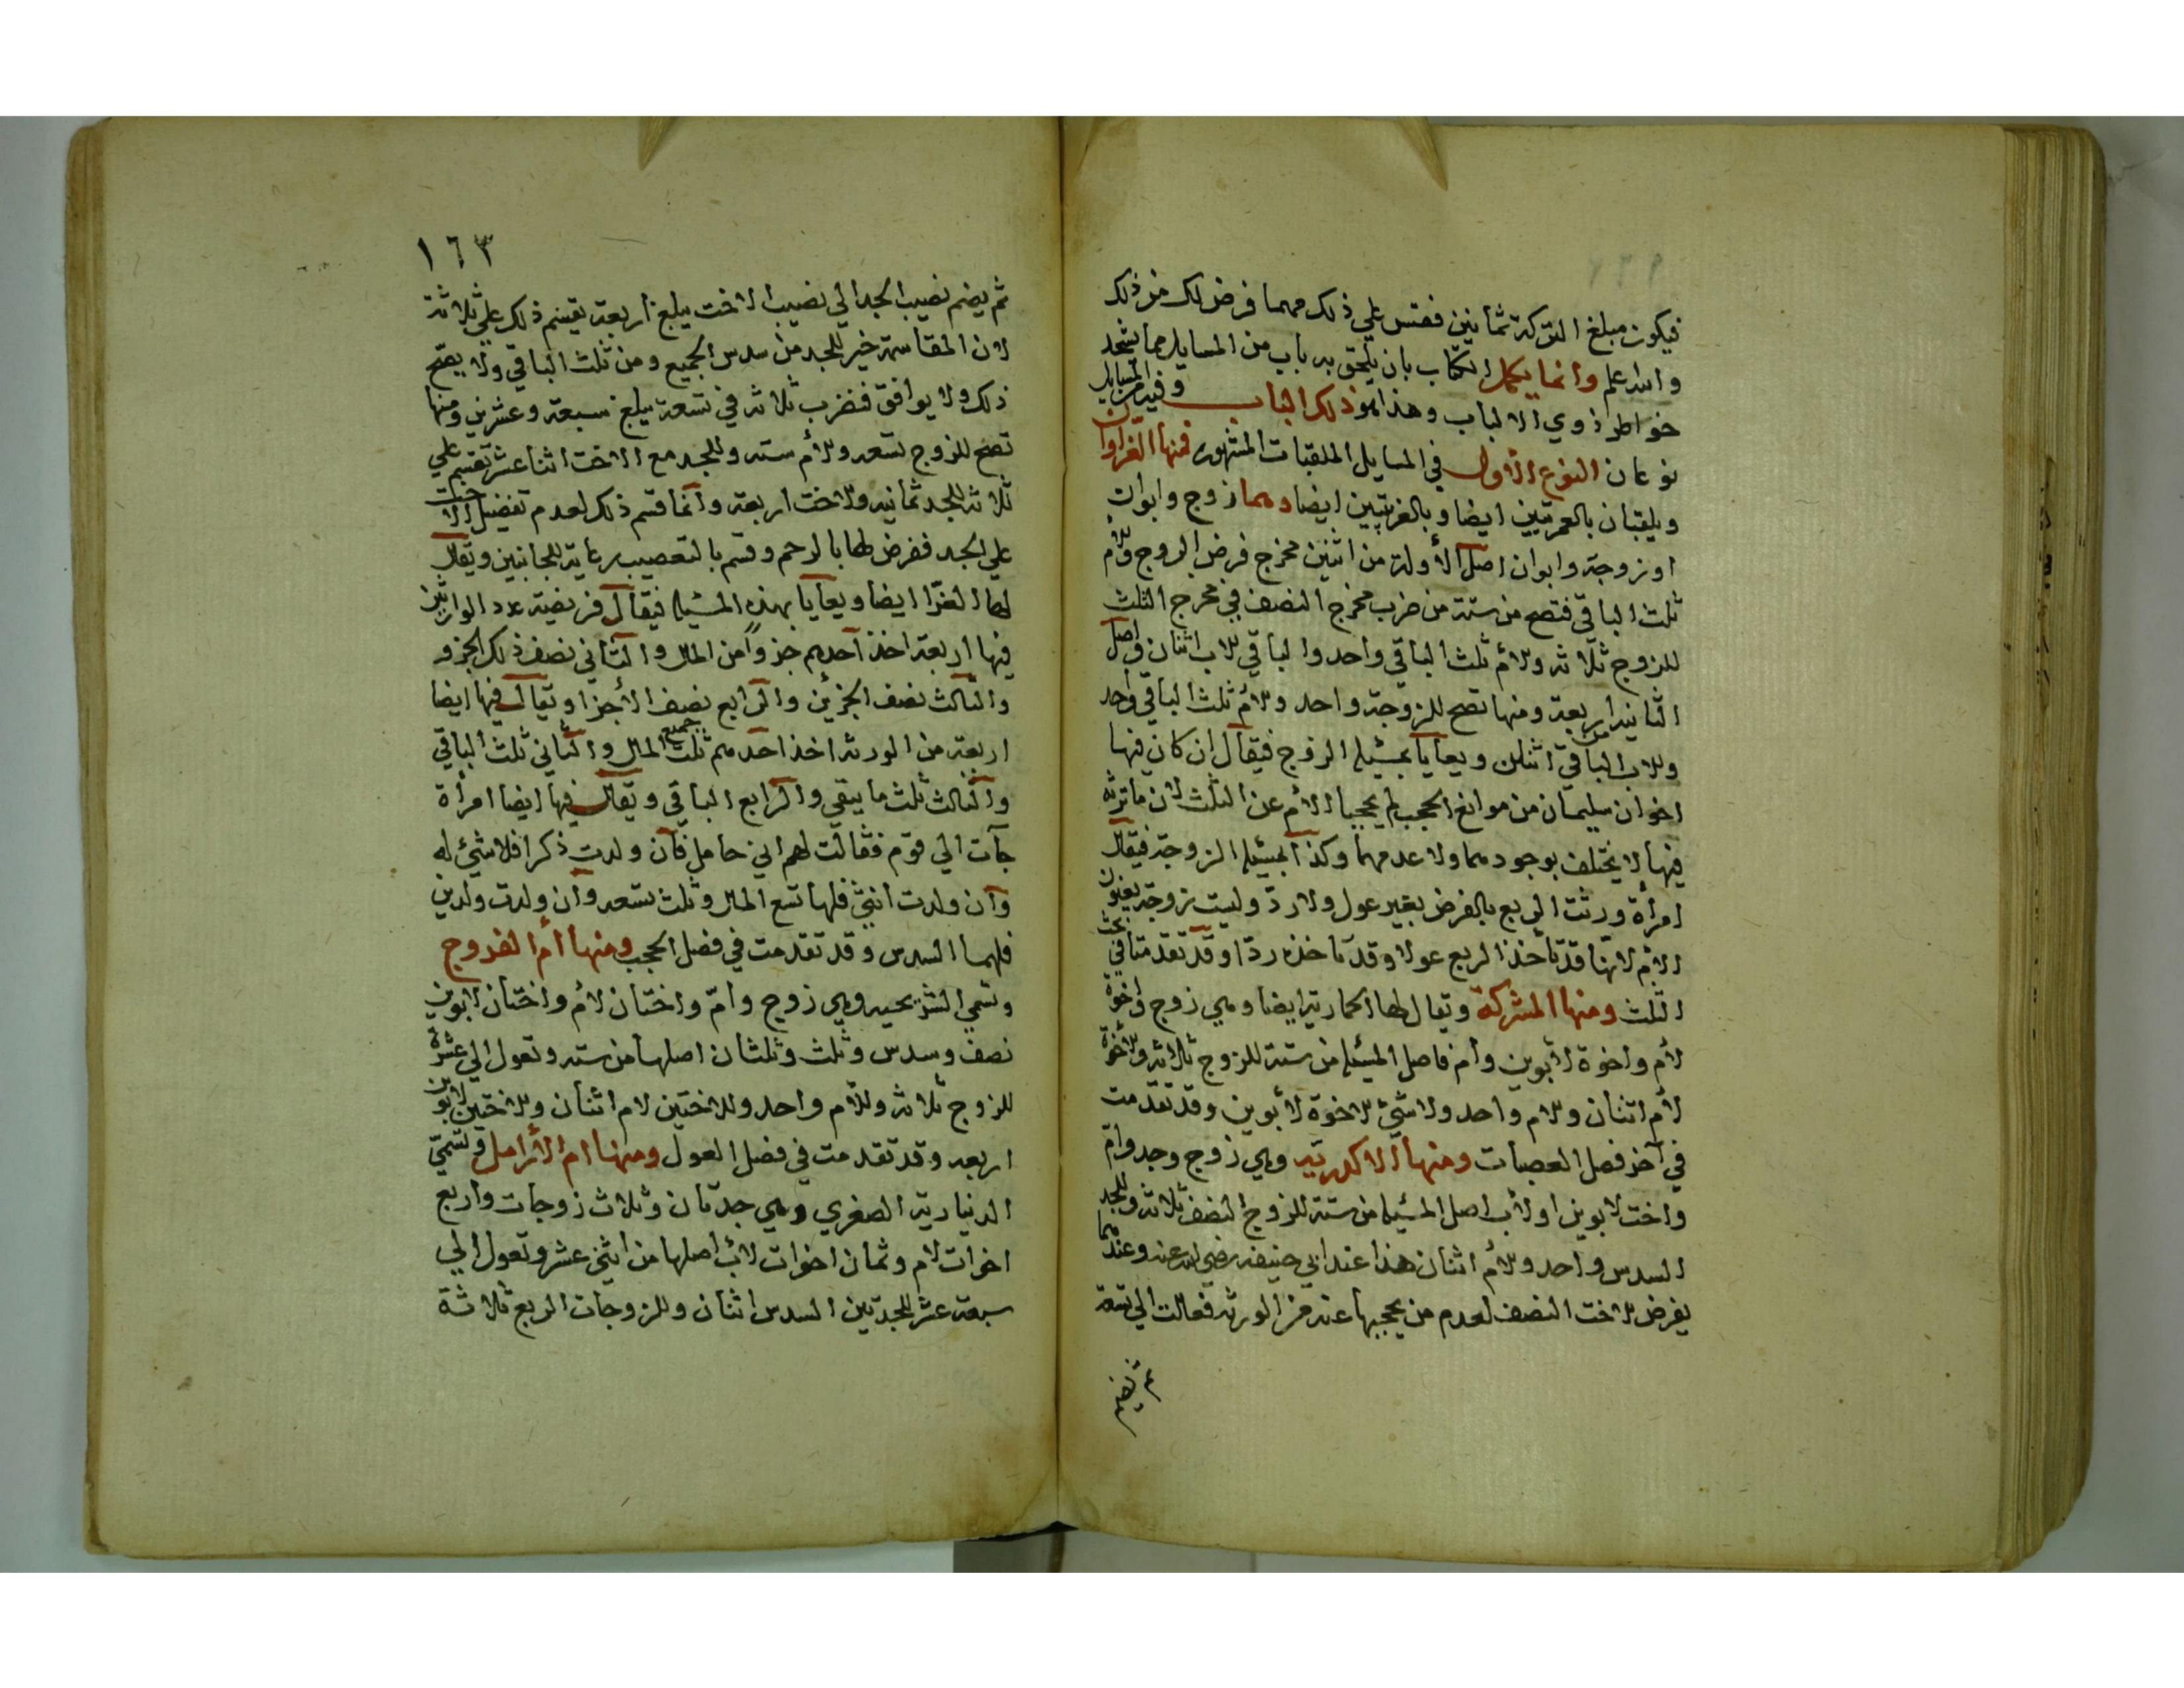 فيكون مبلغ التركة ثمانين فقس علي ذلك مهما فرض لك من ذلك
والله اعلم وانما يكمل الكتاب بان يلحق به باب من المسايل مما يشحد
خواطر ذوي الالباب وهذا هو ذلك الباب وفيه من المسايل
نوعان النوع الاول في المسايل الملقبات المشهورة فمنها الغراوان
ويلقبان بالعمريتين ايضا وبالغريبتين ايضا وهما زوج وابوان
او زوجة وابوان اصل الأولة من اثنين مخرج فرض الزوج وللأم
ثلث الباقي فتصح من ستة من ضرب مخرج النصف في مخرج الثلث
للزوج ثلاثة وللأم ثلث الباقي واحد والباقي للاب اثنان واصل
الثانية اربعة ومنها تصح للزوجة واحد وللأم ثلث الباقي واحد
وللاب الباقي اثنان ويعايا بمسئلة الزوج فيقال ان كان فيها
اخوان سليمان من موانع الحجب لم يحجبا الأم عن الثلث لان ما ترثه
فيها لا يختلف بوجودهما ولا عدمهما وكذا بمسئلة الزوجة فيقال
امرأة ورثت الربع بالفرض بغير عول ولا ردّ وليست زوجة يعنون
الأم لانها قد تأخذ الربع عولا وقد تاخذه ردّا وقد تقدمتا في بحث
الثلث ومنها المشركة ويقال لها الحمارية ايضا وهي زوج واخوة
لأم واخوة لأبوين وأم فاصل المسئلة من ستة للزوج ثلاثة وللاخوة
لأم اثنان وللام واحد ولا شيء للاخوة لأبوين وقد تقدمت
في آخر فصل العصبات ومنها الاكدرية وهي زوج وجد وامّ
واخت لابوين او لأب اصل المسئلة من ستة للزوج النصف ثلاثة وللجد
السدس واحد وللأم اثنان هذا عند ابي حنيفة رضي الله عنه وعندهما
يفرض للاخت النصف لعدم من يحجبها عنه من الورثة فعالت الي تسعة
١٦٣
ثم يضم نصيب الجد الي نصيب الاخت يبلغ اربعة تقسم ذلك علي ثلاثة
لان المقاسمة خير للجد من سدس الجميع ومن ثلث الباقي ولا يصح
ذلك ولا يوافق فتضرب ثلاثة في تسعة يبلغ سبعة وعشرين ومنها
تصح للزوج تسعة وللأم ستة وللجد مع الاخت اثنا عشر تقسم علي
ثلاثة للجد ثمانية وللاخت اربعة وانما قسم ذلك لعدم تفضيل الاخت
علي الجد ففرض لها بالرحم وقسم بالتعصيب رعاية للجانبين ويقال
لها الغرّا ايضا ويعايا بهذه المسئلة فيقال فريضة عدد الوارثين
فيها اربعة اخذ احدهم جزوأ من المال والثاني نصف ذلك الجزو
والثالث نصف الجزئين والرابع نصف الاجزا ويقال فيها ايضا
اربعة من الورثة اخذ احدهم ثلث جميع المال والثاني ثلث الباقي
والثالث ثلث ما يبقي والرابع الباقي ويقال فيها ايضا امرأة
جآت الي قوم فقالت لهم اني حامل فان ولدت ذكرا فلا شيئ له
وان ولدت انثي فلها تسع المال وثلث تسعه وان ولدت ولدين
فلهما السدس وقد تقدمت في فصل الحجب ومنها أم الفروج
وتسمي الشريحية وهي زوج وامّ واختان لأم واختان لابوين
نصف وسدس وثلث وثلثان اصلها من ستة وتعول الي عشرة
للزوج ثلاثة وللأم واحد وللاختين لام اثنان وللاختين لابوين
اربعة وقد تقدمت في فصل العول ومنها ام الأرامل وتسمّي
الدينارية الصغري وهي جدتان وثلاث زوجات واربع
اخوات لام وثمان اخوات لأب اصلها من اثني عشر وتعول الي
سبعة عشر للجدتين السدس اثنان وللزوجات الربع ثلاثة